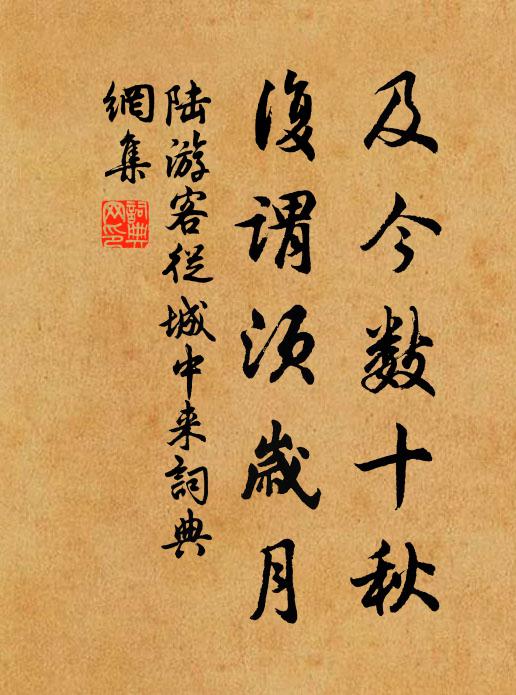 及今数十秋
復謂須歲月
陆游客從城中来詞典
網集
詞典
网印